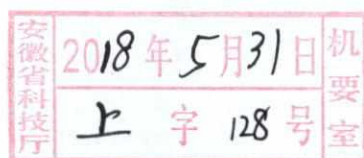 安徽省科技厅
2018年5月31日
上字128号
机要室